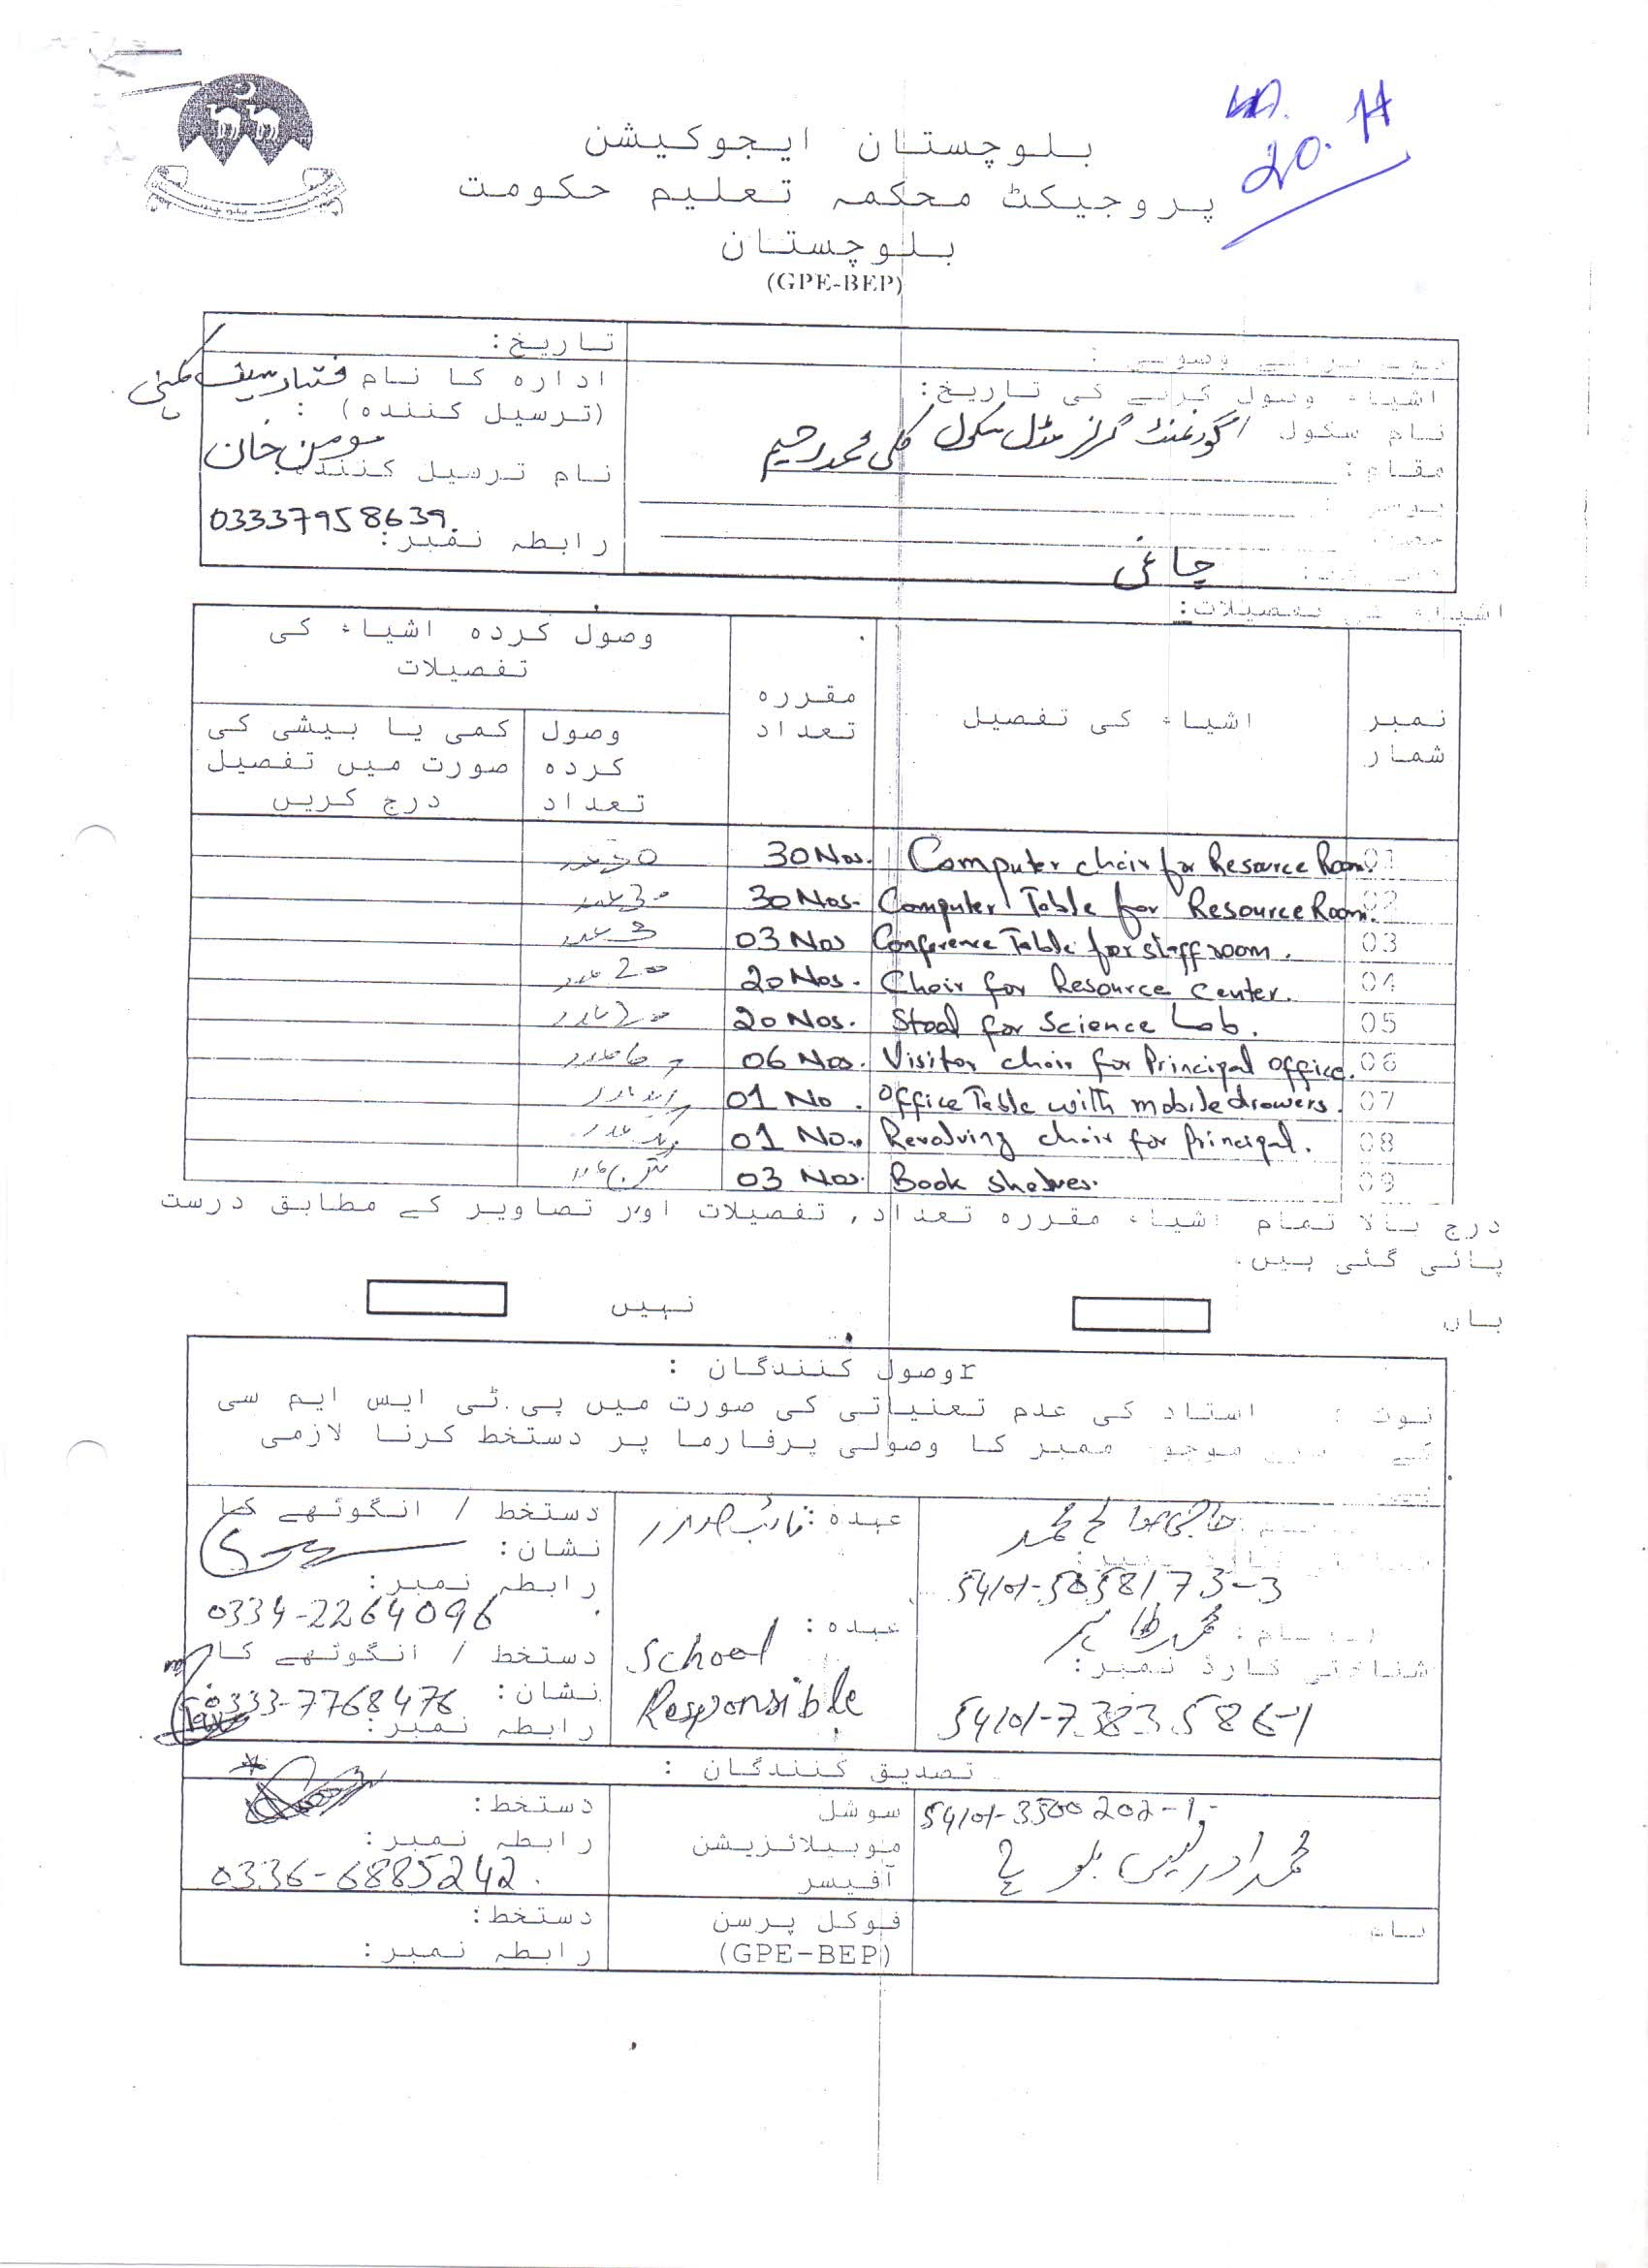 20.11
بلوچستان ایجوکیشن
پروجیکٹ محکمہ تعلیم حکومت
بلوچستان
(GPE-BEP)
تاریخ:
اشیاء وصول کرنے کی تاریخ:
نام سکول گورنمنٹ گرلز مڈل سکول کلی محمد رحیم
مقام:
چاغی
ادارہ کا نام
(ترسیل کنندہ) :
مومن خان
نام ترسیل کنندہ
03337958639
رابطہ نمبر:
اشیاء کی تفصیلات:
نمبر شمار
اشیاء کی تفصیل
مقررہ تعداد
وصول کردہ اشیاء کی تفصیلات
وصول کردہ تعداد
کمی یا بیشی کی صورت میں تفصیل درج کریں
01 Computer chair for Resource Room. 30 Nos. 30 عدد
02 Computer Table for Resource Room. 30 Nos. 30 عدد
03 Conference Table for staff room. 03 Nos 3 عدد
04 Chair for Resource Center. 20 Nos. 20 عدد
05 Stool for Science Lab. 20 Nos. 20 عدد
06 Visitor chair for Principal office. 06 Nos. 6 عدد
07 Office Table with mobile drawers. 01 No.
08 Revolving chair for Principal. 01 No.
09 Book Shelves. 03 Nos.
درج بالا تمام اشیاء مقررہ تعداد, تفصیلات اور تصاویر کے مطابق درست
پائی گئی ہیں.
ہاں
نہیں
rوصول کنندگان :
نوٹ : استاد کی عدم تعنیاتی کی صورت میں پی.ٹی ایس ایم سی
کے موجود ممبر کا وصولی پرفارما پر دستخط کرنا لازمی
عہدہ: نائب صدر
دستخط / انگوٹھے کا
نشان:
رابطہ نمبر:
54101-5058173-3
0334-2264096
نام: محمد طاہر
شناختی کارڈ نمبر:
54101-7383586-1
عہدہ:
School
Responsible
دستخط / انگوٹھے کا
نشان:
0333-7768476
رابطہ نمبر:
تصدیق کنندگان :
54101-3500202-1
محمد ادریس بلوچ
سوشل
موبیلائزیشن
آفیسر
دستخط:
رابطہ نمبر:
0336-6885242
نام
فوکل پرسن
(GPE-BEP)
دستخط:
رابطہ نمبر: